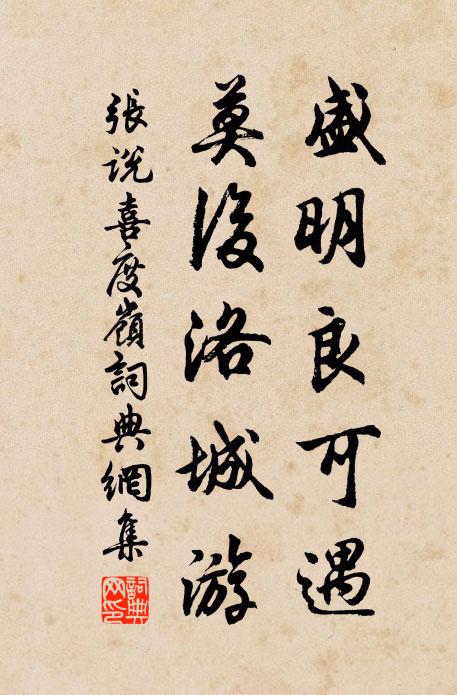 盛明良可遇
莫後洛城游
張説喜度嶺詞典網集
詞典網印